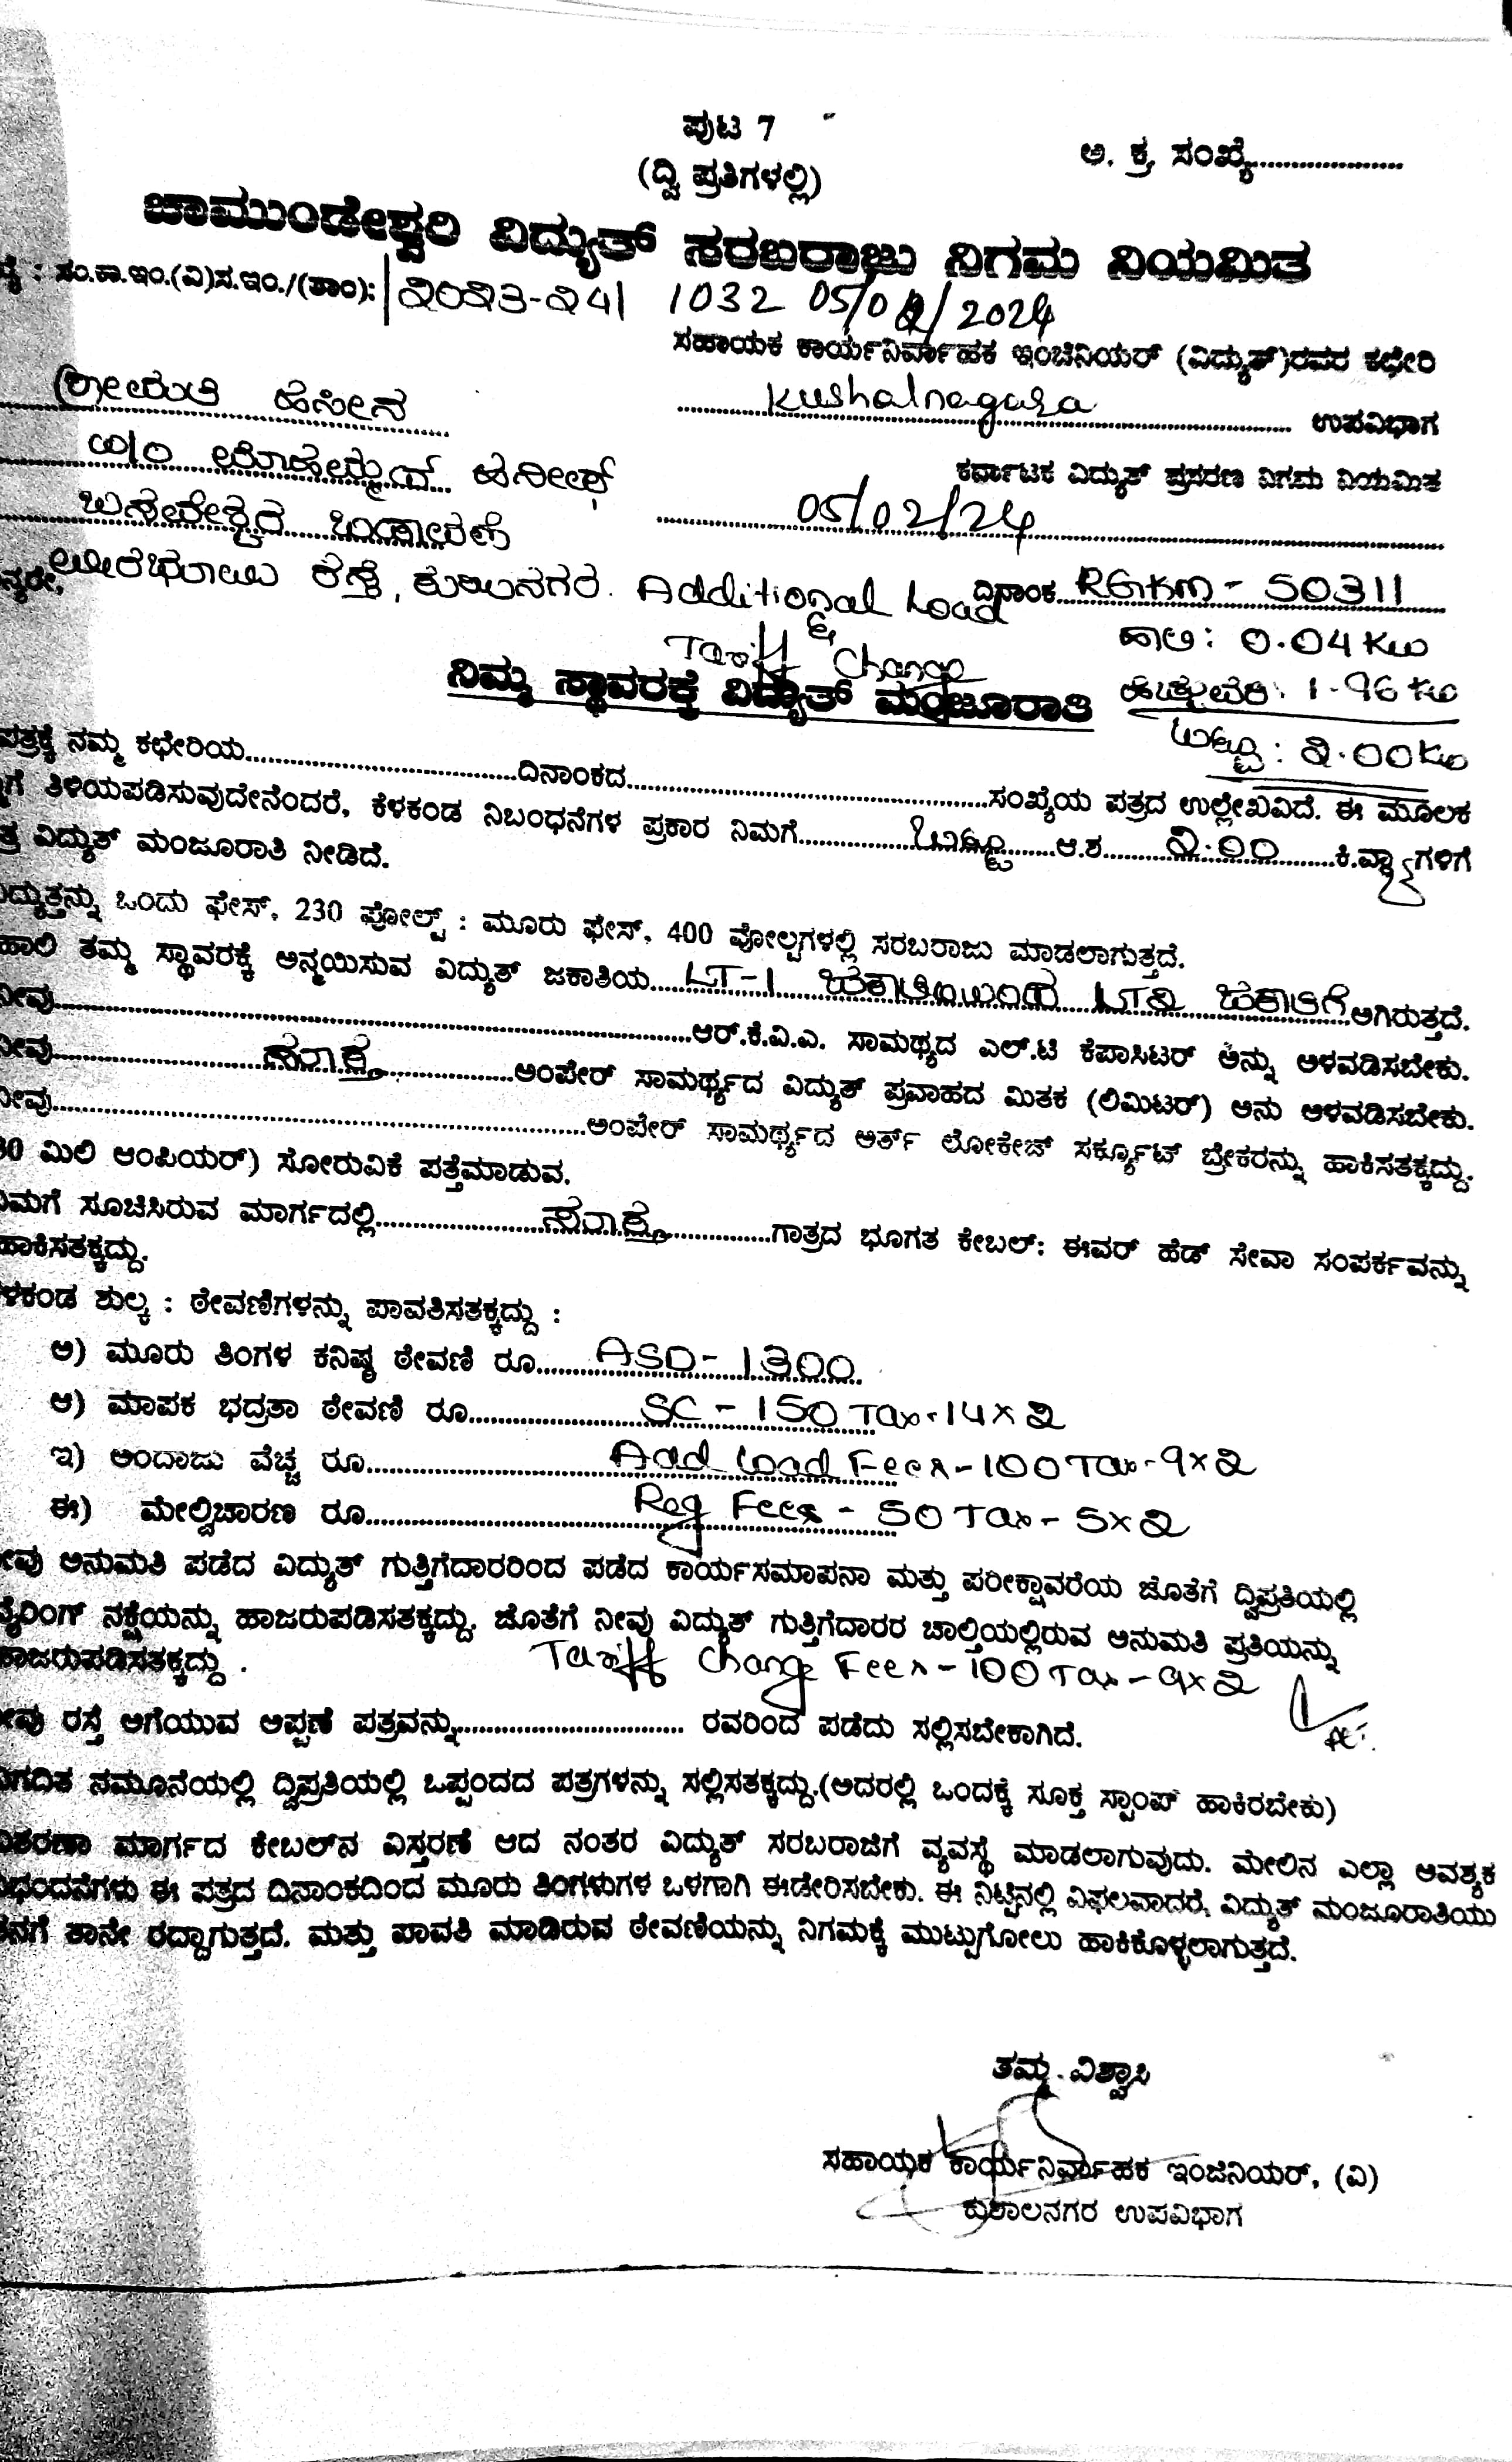 ಪುಟ 7
(ದ್ವಿ ಪ್ರತಿಗಳಲ್ಲಿ)
ಅ. ಕ್ರ. ಸಂಖ್ಯೆ....................
ಚಾಮುಂಡೇಶ್ವರಿ ವಿದ್ಯುತ್ ಸರಬರಾಜು ನಿಗಮ ನಿಯಮಿತ
ಸಂ.ಕಾ.ಇಂ.(ವಿ)ಸ.ಇಂ./(ತಾಂ):|೨೦೨3-೨4| 1032 05/02/2024
ಸಹಾಯಕ ಕಾರ್ಯನಿರ್ವಾಹಕ ಇಂಜಿನಿಯರ್ (ವಿದ್ಯುತ್)ರವರ ಕಛೇರಿ
ಶ್ರೀಮತಿ ಹಸೀನ
Kushalnagara ಉಪವಿಭಾಗ
W/O ಮೊಹಮ್ಮದ್ ಹನೀಫ್
ಕರ್ನಾಟಕ ವಿದ್ಯುತ್ ಪ್ರಸರಣ ನಿಗಮ ನಿಯಮಿತ
ಬಸವೇಶ್ವರ ಬಡಾವಣೆ
05/02/24
ರಸ್ತೆ, ಕುಶಾಲನಗರ. Additional Load
ದಿನಾಂಕ RGKM - 50311
& Tariff Change
ಹಾಲಿ: 0.04 KW
ನಿಮ್ಮ ಸ್ಥಾವರಕ್ಕೆ ವಿದ್ಯುತ್ ಮಂಜೂರಾತಿ
ಹೆಚ್ಚುವರಿ: 1.96 KW
ಒಟ್ಟು: ೨.00 KW
ಪತ್ರಕ್ಕೆ ನಮ್ಮ ಕಛೇರಿಯ....................ದಿನಾಂಕದ....................ಸಂಖ್ಯೆಯ ಪತ್ರದ ಉಲ್ಲೇಖವಿದೆ. ಈ ಮೂಲಕ
ತಿಳಿಯಪಡಿಸುವುದೇನೆಂದರೆ, ಕೆಳಕಂಡ ನಿಬಂಧನೆಗಳ ಪ್ರಕಾರ ನಿಮಗೆ.....ಒಟ್ಟು.....ಆ.ಶ.....೨.00.....ಕಿ.ವ್ಯಾಗಳಿಗೆ
ವಿದ್ಯುತ್ ಮಂಜೂರಾತಿ ನೀಡಿದೆ.
ಒಂದು ಫೇಸ್, 230 ವೋಲ್ಟ್ : ಮೂರು ಫೇಸ್, 400 ವೋಲ್ಟಗಳಲ್ಲಿ ಸರಬರಾಜು ಮಾಡಲಾಗುತ್ತದೆ.
ಹಾಲಿ ತಮ್ಮ ಸ್ಥಾವರಕ್ಕೆ ಅನ್ವಯಿಸುವ ವಿದ್ಯುತ್ ಜಕಾತಿಯ LT-1 ಜಕಾತಿಯಿಂದ LT೨ ಜಕಾತಿಗೆ ಆಗಿರುತ್ತದೆ.
ನೀವು....................ಆರ್.ಕೆ.ವಿ.ಎ. ಸಾಮಥ್ಯದ ಎಲ್.ಟಿ ಕೆಪಾಸಿಟರ್ ಅನ್ನು ಅಳವಡಿಸಬೇಕು.
ನೀವು.....ಸೂಕ್ತ.....ಅಂಪೇರ್ ಸಾಮರ್ಥ್ಯದ ವಿದ್ಯುತ್ ಪ್ರವಾಹದ ಮಿತಕ (ಲಿಮಿಟರ್) ಅನು ಅಳವಡಿಸಬೇಕು.
ನೀವು....................ಅಂಪೇರ್ ಸಾಮರ್ಥ್ಯದ ಅರ್ತ್ ಲೋಕೇಜ್ ಸರ್ಕ್ಯೂಟ್ ಬ್ರೇಕರನ್ನು ಹಾಕಿಸತಕ್ಕದ್ದು.
30 ಮಿಲಿ ಆಂಪಿಯರ್) ಸೋರುವಿಕೆ ಪತ್ತೆಮಾಡುವ.
ನಿಮಗೆ ಸೂಚಿಸಿರುವ ಮಾರ್ಗದಲ್ಲಿ.....ಸೂಕ್ತ.....ಗಾತ್ರದ ಭೂಗತ ಕೇಬಲ್: ಈವರ್ ಹೆಡ್ ಸೇವಾ ಸಂಪರ್ಕವನ್ನು
ಹಾಕಿಸತಕ್ಕದ್ದು.
ಶುಲ್ಕ : ಠೇವಣಿಗಳನ್ನು ಪಾವತಿಸತಕ್ಕದ್ದು :
ಅ) ಮೂರು ತಿಂಗಳ ಕನಿಷ್ಠ ಠೇವಣಿ ರೂ.....ASD - 1300
ಆ) ಮಾಪಕ ಭದ್ರತಾ ಠೇವಣಿ ರೂ.....SC - 150 Tax-14x೨
ಇ) ಅಂದಾಜು ವೆಚ್ಚ ರೂ.....Add Load Fees - 100 Tax-9x೨
ಈ) ಮೇಲ್ವಿಚಾರಣ ರೂ.....Reg Fees - 50 Tax - 5x೨
ನೀವು ಅನುಮತಿ ಪಡೆದ ವಿದ್ಯುತ್ ಗುತ್ತಿಗೆದಾರರಿಂದ ಪಡೆದ ಕಾರ್ಯಸಮಾಪನಾ ಮತ್ತು ಪರೀಕ್ಷಾವರೆಯ ಜೊತೆಗೆ ದ್ವಿಪ್ರತಿಯಲ್ಲಿ
ವೈರಿಂಗ್ ನಕ್ಷೆಯನ್ನು ಹಾಜರುಪಡಿಸತಕ್ಕದ್ದು. ಜೊತೆಗೆ ನೀವು ವಿದ್ಯುತ್ ಗುತ್ತಿಗೆದಾರರ ಚಾಲ್ತಿಯಲ್ಲಿರುವ ಅನುಮತಿ ಪ್ರತಿಯನ್ನು
ಹಾಜರುಪಡಿಸತಕ್ಕದ್ದು. Tariff Change Fees - 100 Tax - 9x೨
ನೀವು ರಸ್ತೆ ಅಗೆಯುವ ಅಪ್ಪಣೆ ಪತ್ರವನ್ನು.................... ರವರಿಂದ ಪಡೆದು ಸಲ್ಲಿಸಬೇಕಾಗಿದೆ.
ನಿಗದಿತ ನಮೂನೆಯಲ್ಲಿ ದ್ವಿಪ್ರತಿಯಲ್ಲಿ ಒಪ್ಪಂದದ ಪತ್ರಗಳನ್ನು ಸಲ್ಲಿಸತಕ್ಕದ್ದು.(ಅದರಲ್ಲಿ ಒಂದಕ್ಕೆ ಸೂಕ್ತ ಸ್ಟಾಂಪ್ ಹಾಕಿರಬೇಕು)
ವಿತರಣಾ ಮಾರ್ಗದ ಕೇಬಲ್‌ನ ವಿಸ್ತರಣೆ ಆದ ನಂತರ ವಿದ್ಯುತ್ ಸರಬರಾಜಿಗೆ ವ್ಯವಸ್ಥೆ ಮಾಡಲಾಗುವುದು. ಮೇಲಿನ ಎಲ್ಲಾ ಅವಶ್ಯಕ
ನಿಭಂದನೆಗಳು ಈ ಪತ್ರದ ದಿನಾಂಕದಿಂದ ಮೂರು ತಿಂಗಳುಗಳ ಒಳಗಾಗಿ ಈಡೇರಿಸಬೇಕು. ಈ ನಿಟ್ಟಿನಲ್ಲಿ ವಿಫಲವಾದರೆ, ವಿದ್ಯುತ್ ಮಂಜೂರಾತಿಯು
ತನಗೆ ತಾನೇ ರದ್ದಾಗುತ್ತದೆ. ಮತ್ತು ಪಾವತಿ ಮಾಡಿರುವ ಠೇವಣಿಯನ್ನು ನಿಗಮಕ್ಕೆ ಮುಟ್ಟುಗೋಲು ಹಾಕಿಕೊಳ್ಳಲಾಗುತ್ತದೆ.
ತಮ್ಮ ವಿಶ್ವಾಸಿ
ಸಹಾಯಕ ಕಾರ್ಯನಿರ್ವಾಹಕ ಇಂಜಿನಿಯರ್, (ವಿ)
ಕುಶಾಲನಗರ ಉಪವಿಭಾಗ